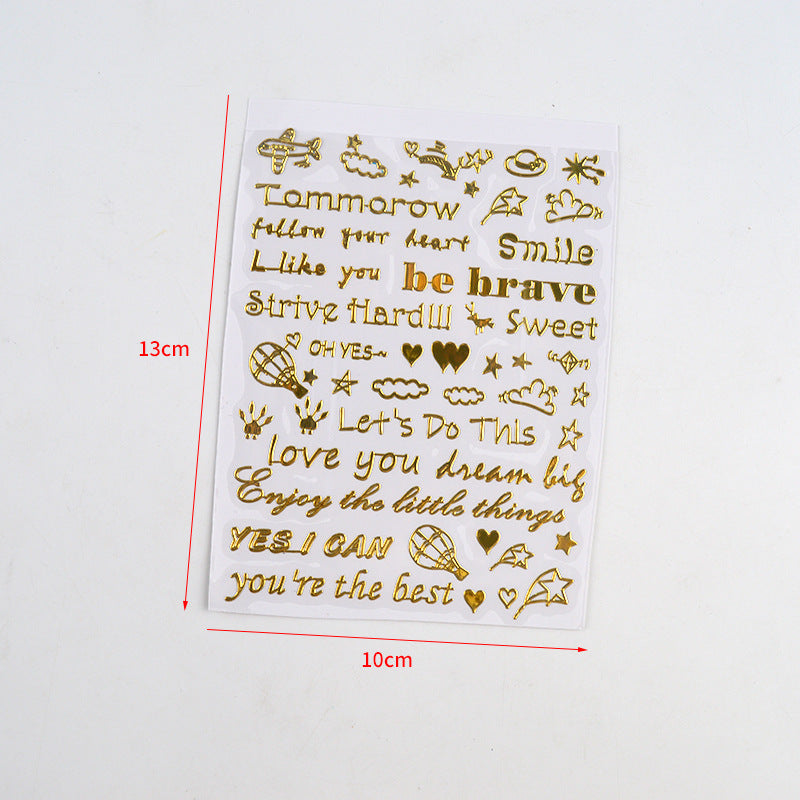 Tommorow
follow your heart
Smile
L like you
be brave
Strive Hard!!!
Sweet
OH YES~
13cm
Let's Do This
love you dream big
Enjoy the little things
YES I CAN
you're the best
10cm